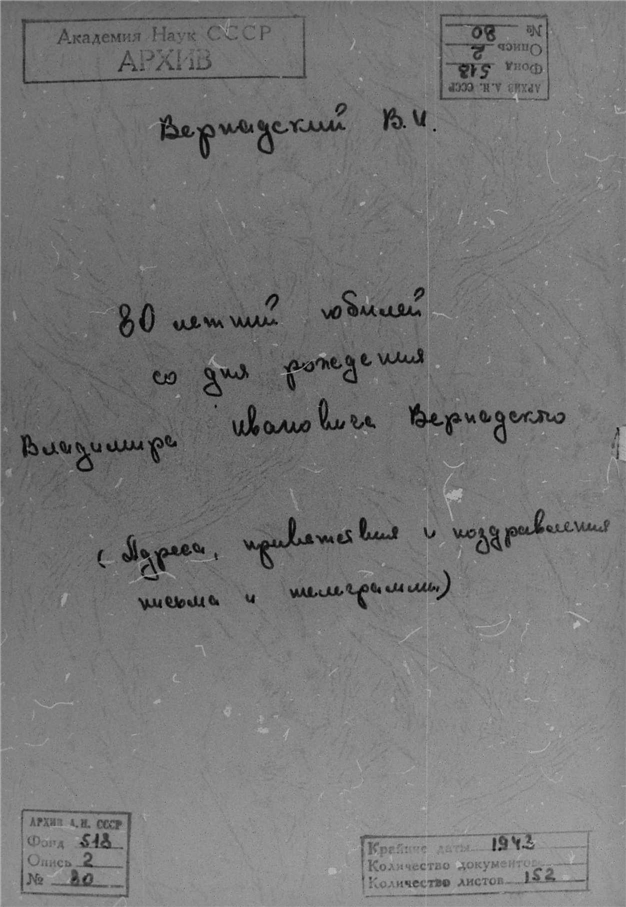 Академия Наук СССР
АРХИВ
АРХИВ А.Н. СССР
Фонд 518
Опись 2
№ 80
Вернадский В.И.
80 летний юбилей
со дня рождения
Владимира Ивановича Вернадского
(Адреса, приветствия и поздравления
письма и телеграммы)
АРХИВ А.Н. СССР
Фонд 518
Опись 2
№ 80
Крайние даты 1943
Количество документов
Количество листов 152